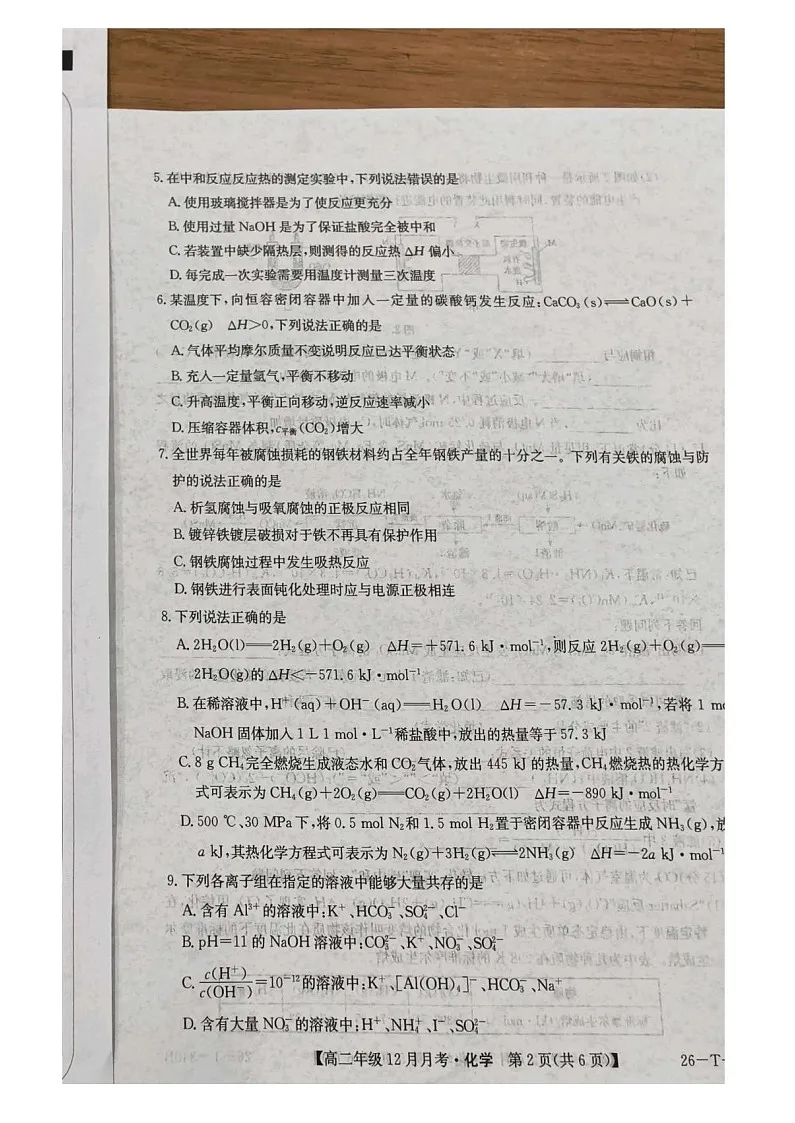 5.在中和反应反应热的测定实验中,下列说法错误的是
A.使用玻璃搅拌器是为了使反应更充分
B.使用过量 NaOH 是为了保证盐酸完全被中和
C.若装置中缺少隔热层,则测得的反应热 ΔH 偏小
D.每完成一次实验需要用温度计测量三次温度
6.某温度下,向恒容密闭容器中加入一定量的碳酸钙发生反应:CaCO₃(s)⇌CaO(s)+
CO₂(g) ΔH>0,下列说法正确的是
A.气体平均摩尔质量不变说明反应已达平衡状态
B.充入一定量氩气,平衡不移动
C.升高温度,平衡正向移动,逆反应速率减小
D.压缩容器体积,c平衡(CO₂)增大
7.全世界每年被腐蚀损耗的钢铁材料约占全年钢铁产量的十分之一。下列有关铁的腐蚀与防
护的说法正确的是
A.析氢腐蚀与吸氧腐蚀的正极反应相同
B.镀锌铁镀层破损对于铁不再具有保护作用
C.钢铁腐蚀过程中发生吸热反应
D.钢铁进行表面钝化处理时应与电源正极相连
8.下列说法正确的是
A.2H₂O(l)══2H₂(g)+O₂(g) ΔH=+571.6 kJ·mol⁻¹,则反应 2H₂(g)+O₂(g)══
2H₂O(g)的 ΔH<-571.6 kJ·mol⁻¹
B.在稀溶液中,H⁺(aq)+OH⁻(aq)══H₂O(l) ΔH=-57.3 kJ·mol⁻¹,若将 1 mo
NaOH 固体加入 1 L 1 mol·L⁻¹稀盐酸中,放出的热量等于 57.3 kJ
C.8 g CH₄完全燃烧生成液态水和 CO₂气体,放出 445 kJ 的热量,CH₄燃烧热的热化学方
式可表示为 CH₄(g)+2O₂(g)══CO₂(g)+2H₂O(l) ΔH=-890 kJ·mol⁻¹
D.500 ℃、30 MPa 下,将 0.5 mol N₂和 1.5 mol H₂置于密闭容器中反应生成 NH₃(g),放
a kJ,其热化学方程式可表示为 N₂(g)+3H₂(g)⇌2NH₃(g) ΔH=-2a kJ·mol⁻¹
9.下列各离子组在指定的溶液中能够大量共存的是
A.含有 Al³⁺的溶液中:K⁺、HCO₃⁻、SO₄²⁻、Cl⁻
B.pH=11 的 NaOH 溶液中:CO₃²⁻、K⁺、NO₃⁻、SO₄²⁻
C.c(H⁺)/c(OH⁻)=10⁻¹²的溶液中:K⁺、[Al(OH)₄]⁻、HCO₃⁻、Na⁺
D.含有大量 NO₃⁻的溶液中:H⁺、NH₄⁺、I⁻、SO₄²⁻
【高二年级 12 月月考·化学 第 2 页(共 6 页)】 26-T-